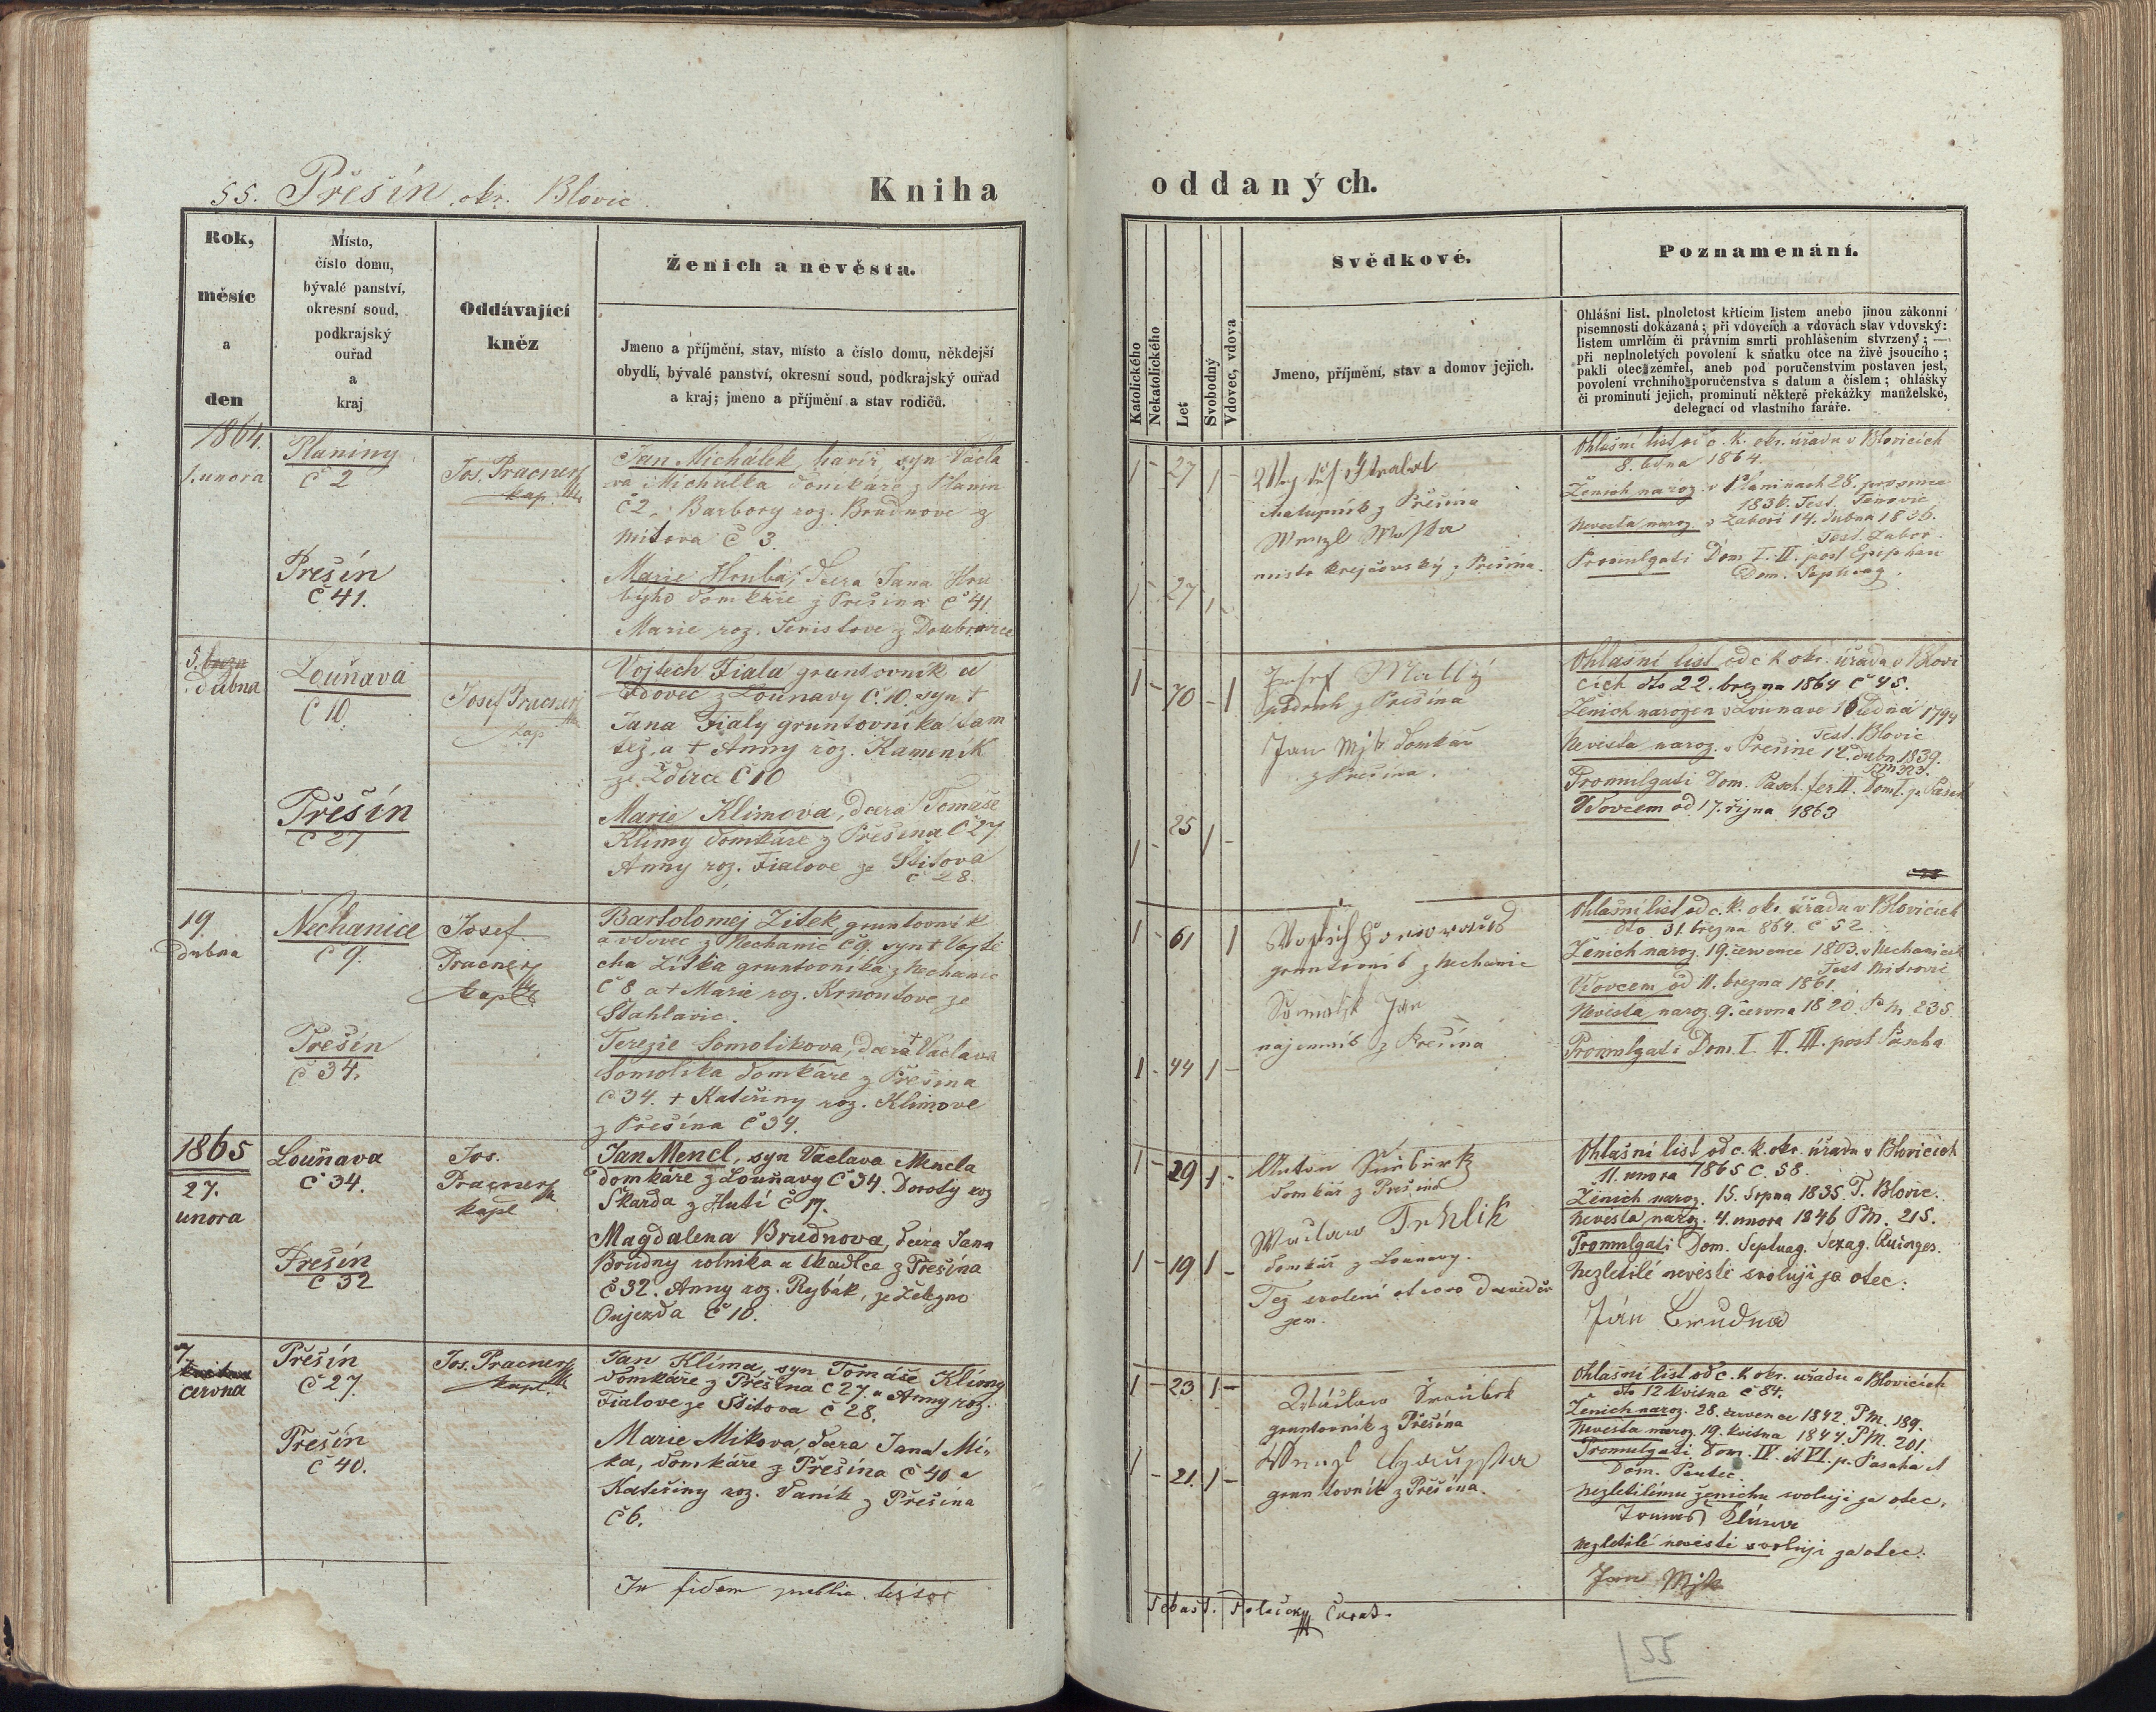 55. Přešín, okr. Blovic
Kniha
oddaných.
Rok,
měsíc
a
den
Místo,
číslo domu,
bývalé panství,
okresní soud,
podkrajský
ouřad
a
kraj
Oddávající
kněz
Ženich a nevěsta.
Jmeno a příjmění, stav, místo a číslo domu, někdejší
obydlí, bývalé panství, okresní soud, podkrajský ouřad
a kraj; jmeno a příjmění a stav rodičů.
Katolického
Nekatolického
Let
Svobodný
Vdovec, vdova
Svědkové.
Jmeno, příjmění, stav a domov jejich.
Poznamenání.
Ohlášní list, plnoletost křticím listem anebo jinou zákonní
písemností dokázaná; při vdovcích a vdovách stav vdovský:
listem umrlčím či právním smrti prohlášením stvrzený; —
při neplnoletých povolení k sňatku otce na živě jsoucího;
pakli otec zemřel, aneb pod poručenstvím postaven jest,
povolení vrchního poručenstva s datum a číslem; ohlášky
či prominutí jejich, prominutí některé překážky manželské,
delegací od vlastního faráře.
1864.
1. unora
Planiny
č 2
Jos. Pracner
kap.
Jan Michálek, havíř, syn Václa
va Michalka domkáře z Planin
č 2, Barbory roz. Brudnove z
Mitova č 3.
Přešín
č 41.
Marie Hrubá, dcera Jana Hru
býho domkáře z Přešína č 41
Marie roz. z Doubravice
1 - 27 1 -
Strabal
chalupník z Přešína
Wenzl
mistr krejčovský z Přešína.
1 - 27 1 -
Ohlašní list od c. k. okr. úřadu v Blovicích
8. ledna 1864.
Ženich naroz. v Planinach 28. prosince
1836. Test.
Nevesta naroz. v Zaboří 14. dubna 1836.
Test. Zabor.
Promulgati Dom I. II. post Epiphan
Dom. Septuag.
5. březn
dubna
Louňava
č 10
Josef Pracner
kap
Vojtech Fiala gruntovník a
vdovec z Louňavy č. 10. syn †
Jana Fialy gruntovníka tam
též, a † Anny roz. Kameník
ze Ždírce č 10
Přešín
č 27
Marie Klimova, dcera Tomáše
Klimy domkáře z Přešína č 27.
Anny roz. Fialove ze Štitova
č 28.
1 - 70 - 1
Josef Mallý
podruh z Přešína
Jan Mjk domkař
z Přešína.
25
1 - 1 -
Ohlašní list od c k okr. úřadu v Blovi
cích dto 22. března 1864 č 45.
Ženich narozen v Louňavě 1794
Test. Blovic
Nevěsta naroz. v Přešině 12. dubn. 1839.
Promulgati Dom. Pasch. fer II. Dom I. p. Pasch
Vdovcem od 17. října 1863
19.
Dubna
Nechanice
č 9.
Josef
Pracner
kapl.
Bartolomej Zítek, gruntovník
a vdovec z Nechanic č 9. syn † Vojtě
cha Zítka gruntovníka z Nechanic
č 8 a † Marie roz. Krnoulove ze
Štahlavic.
Přešín
č 34.
Terezie Somolikova, dcera † Vaclava
Somolika domkáře z Přešína
č 34. † Kateřiny roz. Klimove
z Přešína č 34.
1 - 61 1
gruntovník z Nechanic
Somolik Jan
najemník z Přešína
1 - 44 1 -
Ohlašní list od c. k. okr. úřadu v Blovicích
dto. 31. března 864. č 52
Ženich naroz. 19. července 1803. v Nechanicich
Test
Vdovcem od 11. března 1861.
Nevěsta naroz. 9. června 1820. P. M. 235
Promulgati Dom. I II. III. post Pascha
1865
27.
unora
Louňava
č 34.
Jos.
Pracner
kapl
Jan Mencl, syn Vaclava Mencla
domkáře z Louňavy č 34. Doroty roz
Škarda z Hutí č 17.
Přešín
č 32
Magdalena Brudnova, dcera Jana
Brudny rolníka a tkadlce z Přešína
č 32. Anny roz. Rybák, ze Železno
Oujezda č 10.
1 - 29 1 -
Anton
domkář z Přešína
Waclaw Trhlik
domkář z Lounavy.
1 - 19 1 -
Tez svolení otcovo
jem.
Ohlašní list od c. k. okr. úřadu v Blovicích
11. unora 1865 č. 58.
Ženich naroz. 15. Srpna 1835. T. Blovic.
Nevěsta naroz. 4. unora 1846 P M. 215.
Promulgati Dom. Septuag. Sexag. Quinges.
Nezletilé nevěstě svoluji ja otec:
Ján Brudna
7.
června
Přešín
č 27.
Jos. Pracner
kapl.
Jan Klíma, syn Tomáše Klímy
domkáře z Přešína č 27. a Anny roz.
Fialove ze Štitova č 28.
Přešín
č 40.
Marie Mikova, dcera Jana Mí-
ka, domkáře z Přešína č 40 a
Kateřiny roz. Vaník z Přešína
č 6.
1 - 23 1 -
gruntovník z Přešína
1 - 21. 1 -
gruntovník z Přešína.
Ohlašní list od c. k okr. uřadu v Blovicích
dto 12 května č 84.
Ženich naroz. 28. července 1842. P M. 189.
Nevěsta naroz. 19. května 1844. P M. 201.
Promulgati Dom. IV. et VI. p. Pascha et
Dom. Pentec.
Nezletilímu ženichu svoluji ja otec,
Tomas Klima
Nezletilé nevěstě svoluji ja otec:
Jan Mjk
In fidem public. testor
Sebast. Polaček Curat.
55